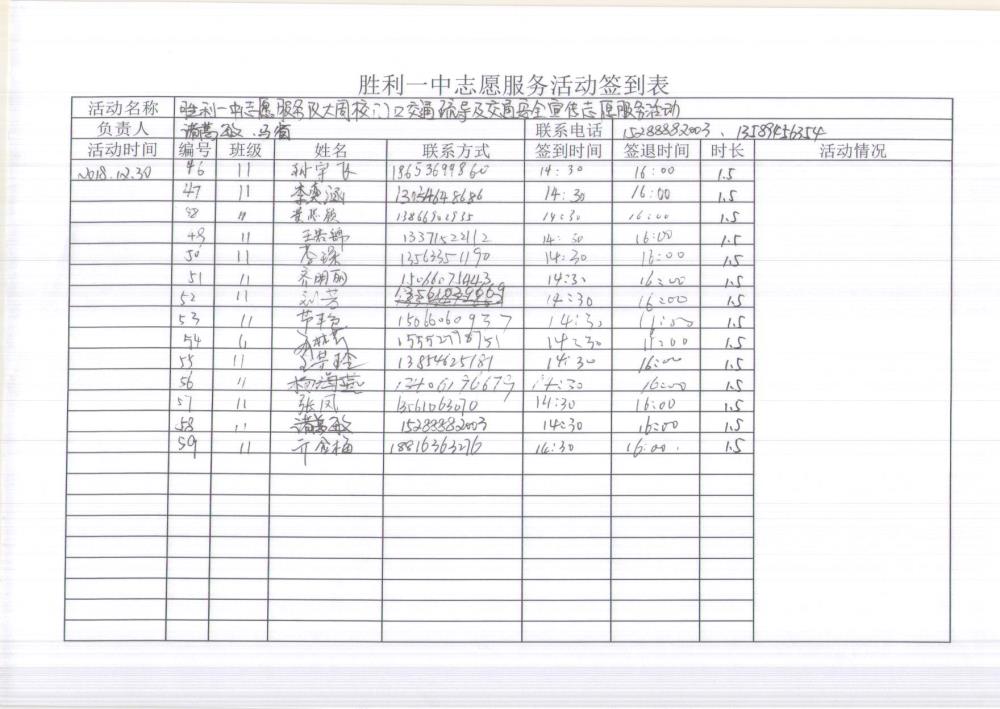 胜利一中志愿服务活动签到表
活动名称 胜利一中志愿服务队大周校门口交通疏导及交通安全宣传志愿服务活动
负责人 诸葛敏、马 联系电话 15288882003、13589456354
活动时间 编号 班级 姓名 联系方式 签到时间 签退时间 时长 活动情况
2018.12.30 46 11 孙宇飞 18653699860 14:30 16:00 1.5
47 11 李爽涵 14:30 16:00 1.5
48 〃 黄 14:30 16:00 1.5
49 11 王 13371522112 14:30 16:00 1.5
50 11 李琛 13563351190 14:30 16:00 1.5
51 11 齐明丽 15066073443 14:30 16:00 1.5
52 11 刘芳 14:30 16:00 1.5
53 11 节艳 15066060937 14:30 16:00 1.5
54 14:30 16:00 1.5
55 11 王荣玲 13854625181 14:30 16:00 1.5
56 〃 杨海燕 14:30 16:00 1.5
57 11 张凤 13561063070 14:30 16:00 1.5
58 〃 诸葛敏 15288882003 14:30 16:00 1.5
59 11 亓金梅 18816363276 14:30 16:00 1.5